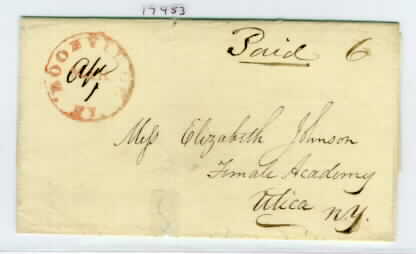 17453
Paid 6
Apl
1
Miss Elizabeth Johnson
Female Academy
Utica NY.